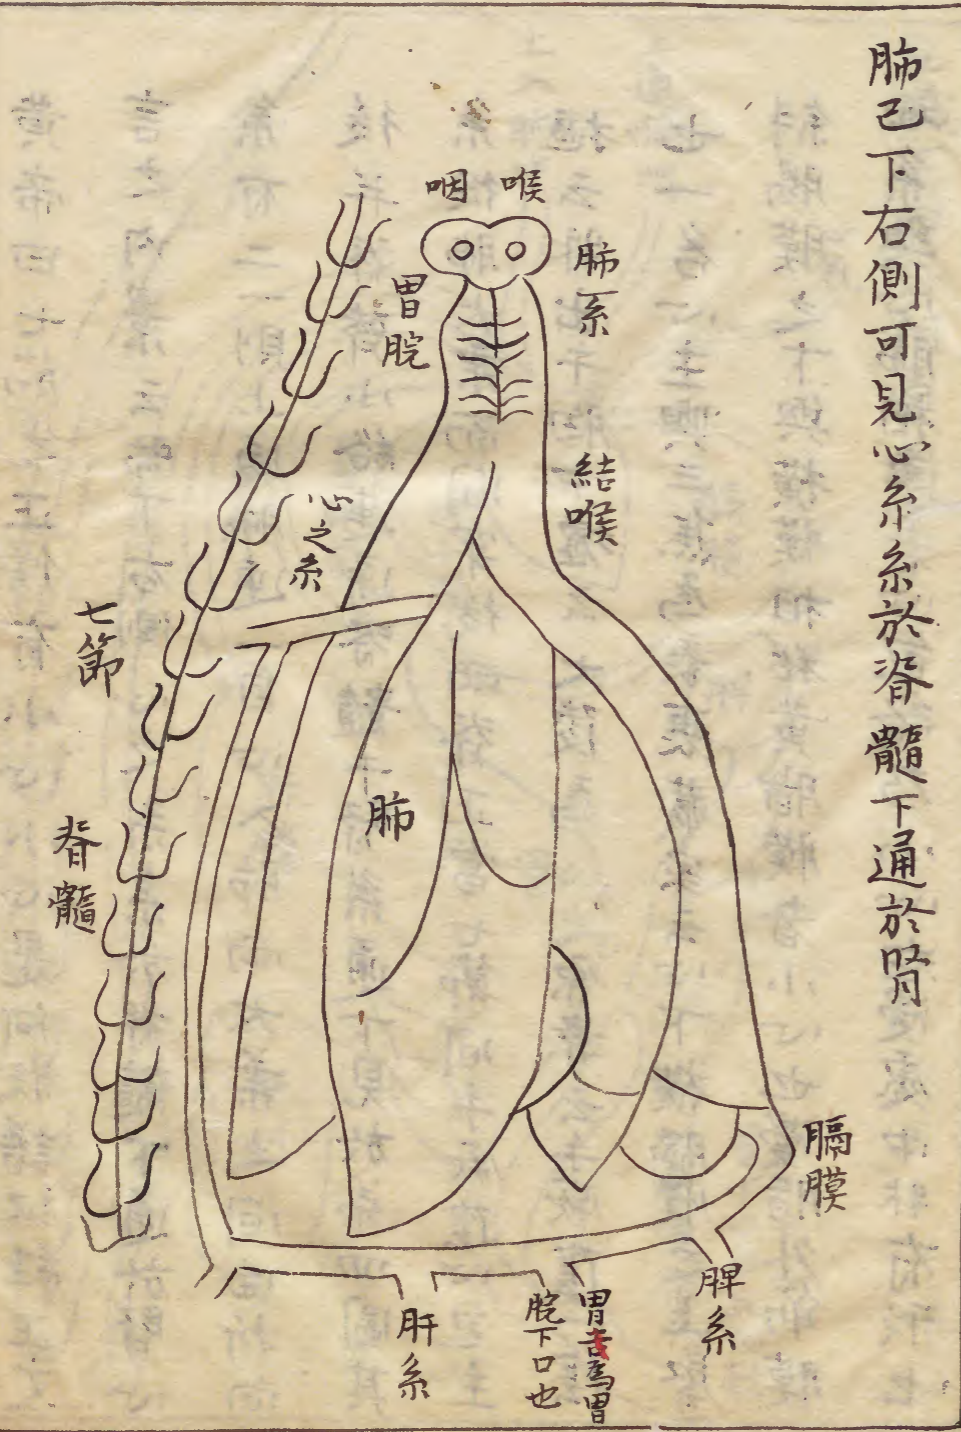 肺已下右側可見心系系於脊髓下通於腎
咽
喉
肺系
胃脘
結喉
心之系
七節
肺
脊髓
膈膜
脾系
胃為胃
脘下口也
肝系